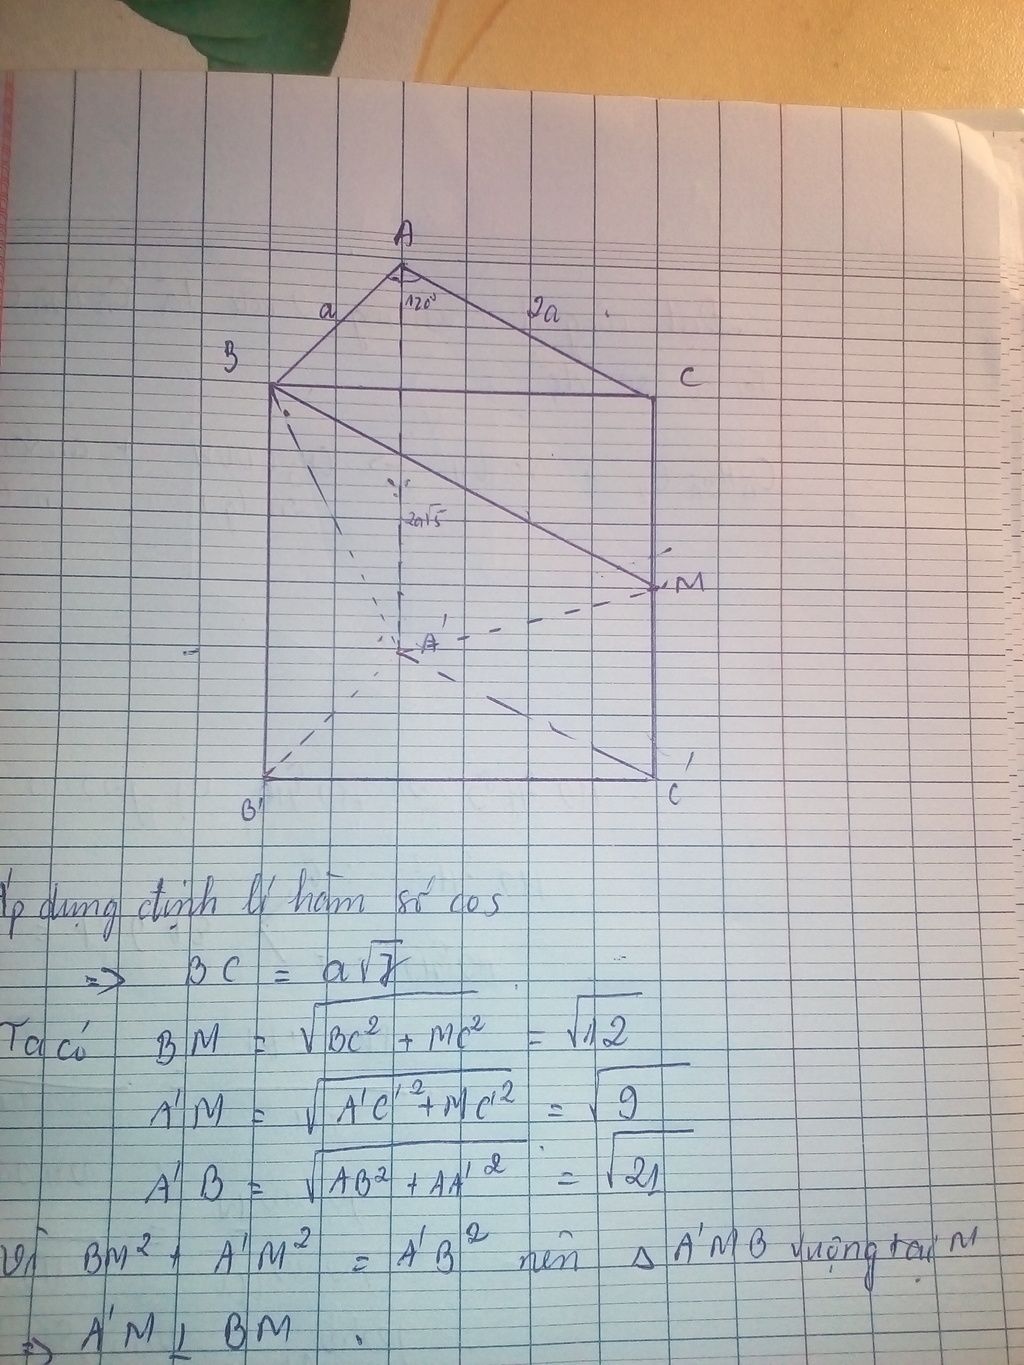 A
120°
a
2a
B
C
2a√5
M
A'
B'
C'
Áp dụng định lí hàm số cos
=> BC = a√7
Ta có BM = √BC² + MC² = √12
A'M = √A'C'² + MC'² = √9
A'B = √AB² + AA'² = √21
Vì BM² + A'M² = A'B² nên Δ A'MB vuộng tại M
=> A'M ⊥ BM .